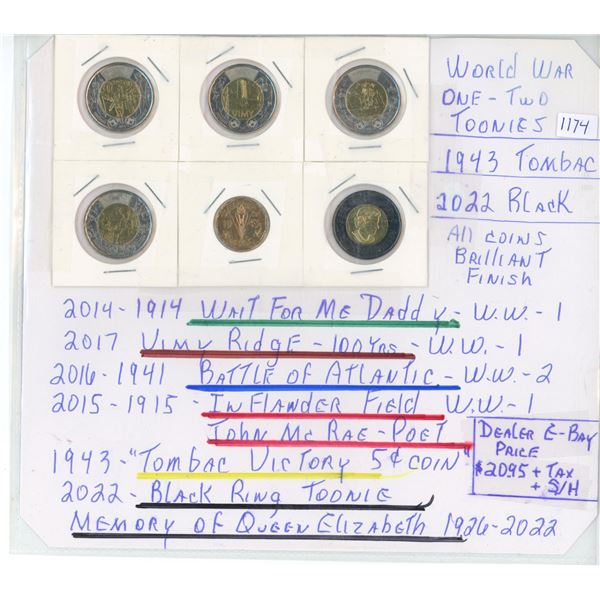 WORLD WAR
ONE - TWO
TOONIES
1174
1943 TOMBAC
2022 BLACK
All COINS
BRILLIANT
FINISH
VIMY
2014 - 1914 WAIT FOR ME DADDY - W.W. - 1
2017 VIMY RIDGE - 100 YRS - W.W. - 1
2016 - 1941 BATTLE OF ATLANTIC - W.W. - 2
2015 - 1915 - IN FLANDER FIELD W.W. - 1
JOHN MC RAE - POET
1943 - "TOMBAC VICTORY 5¢ COIN"
2022 - BLACK RING TOONIE
MEMORY OF QUEEN ELIZABETH 1926 - 2022
DEALER E-BAY
PRICE
$20.95 + TAX
+ S/H